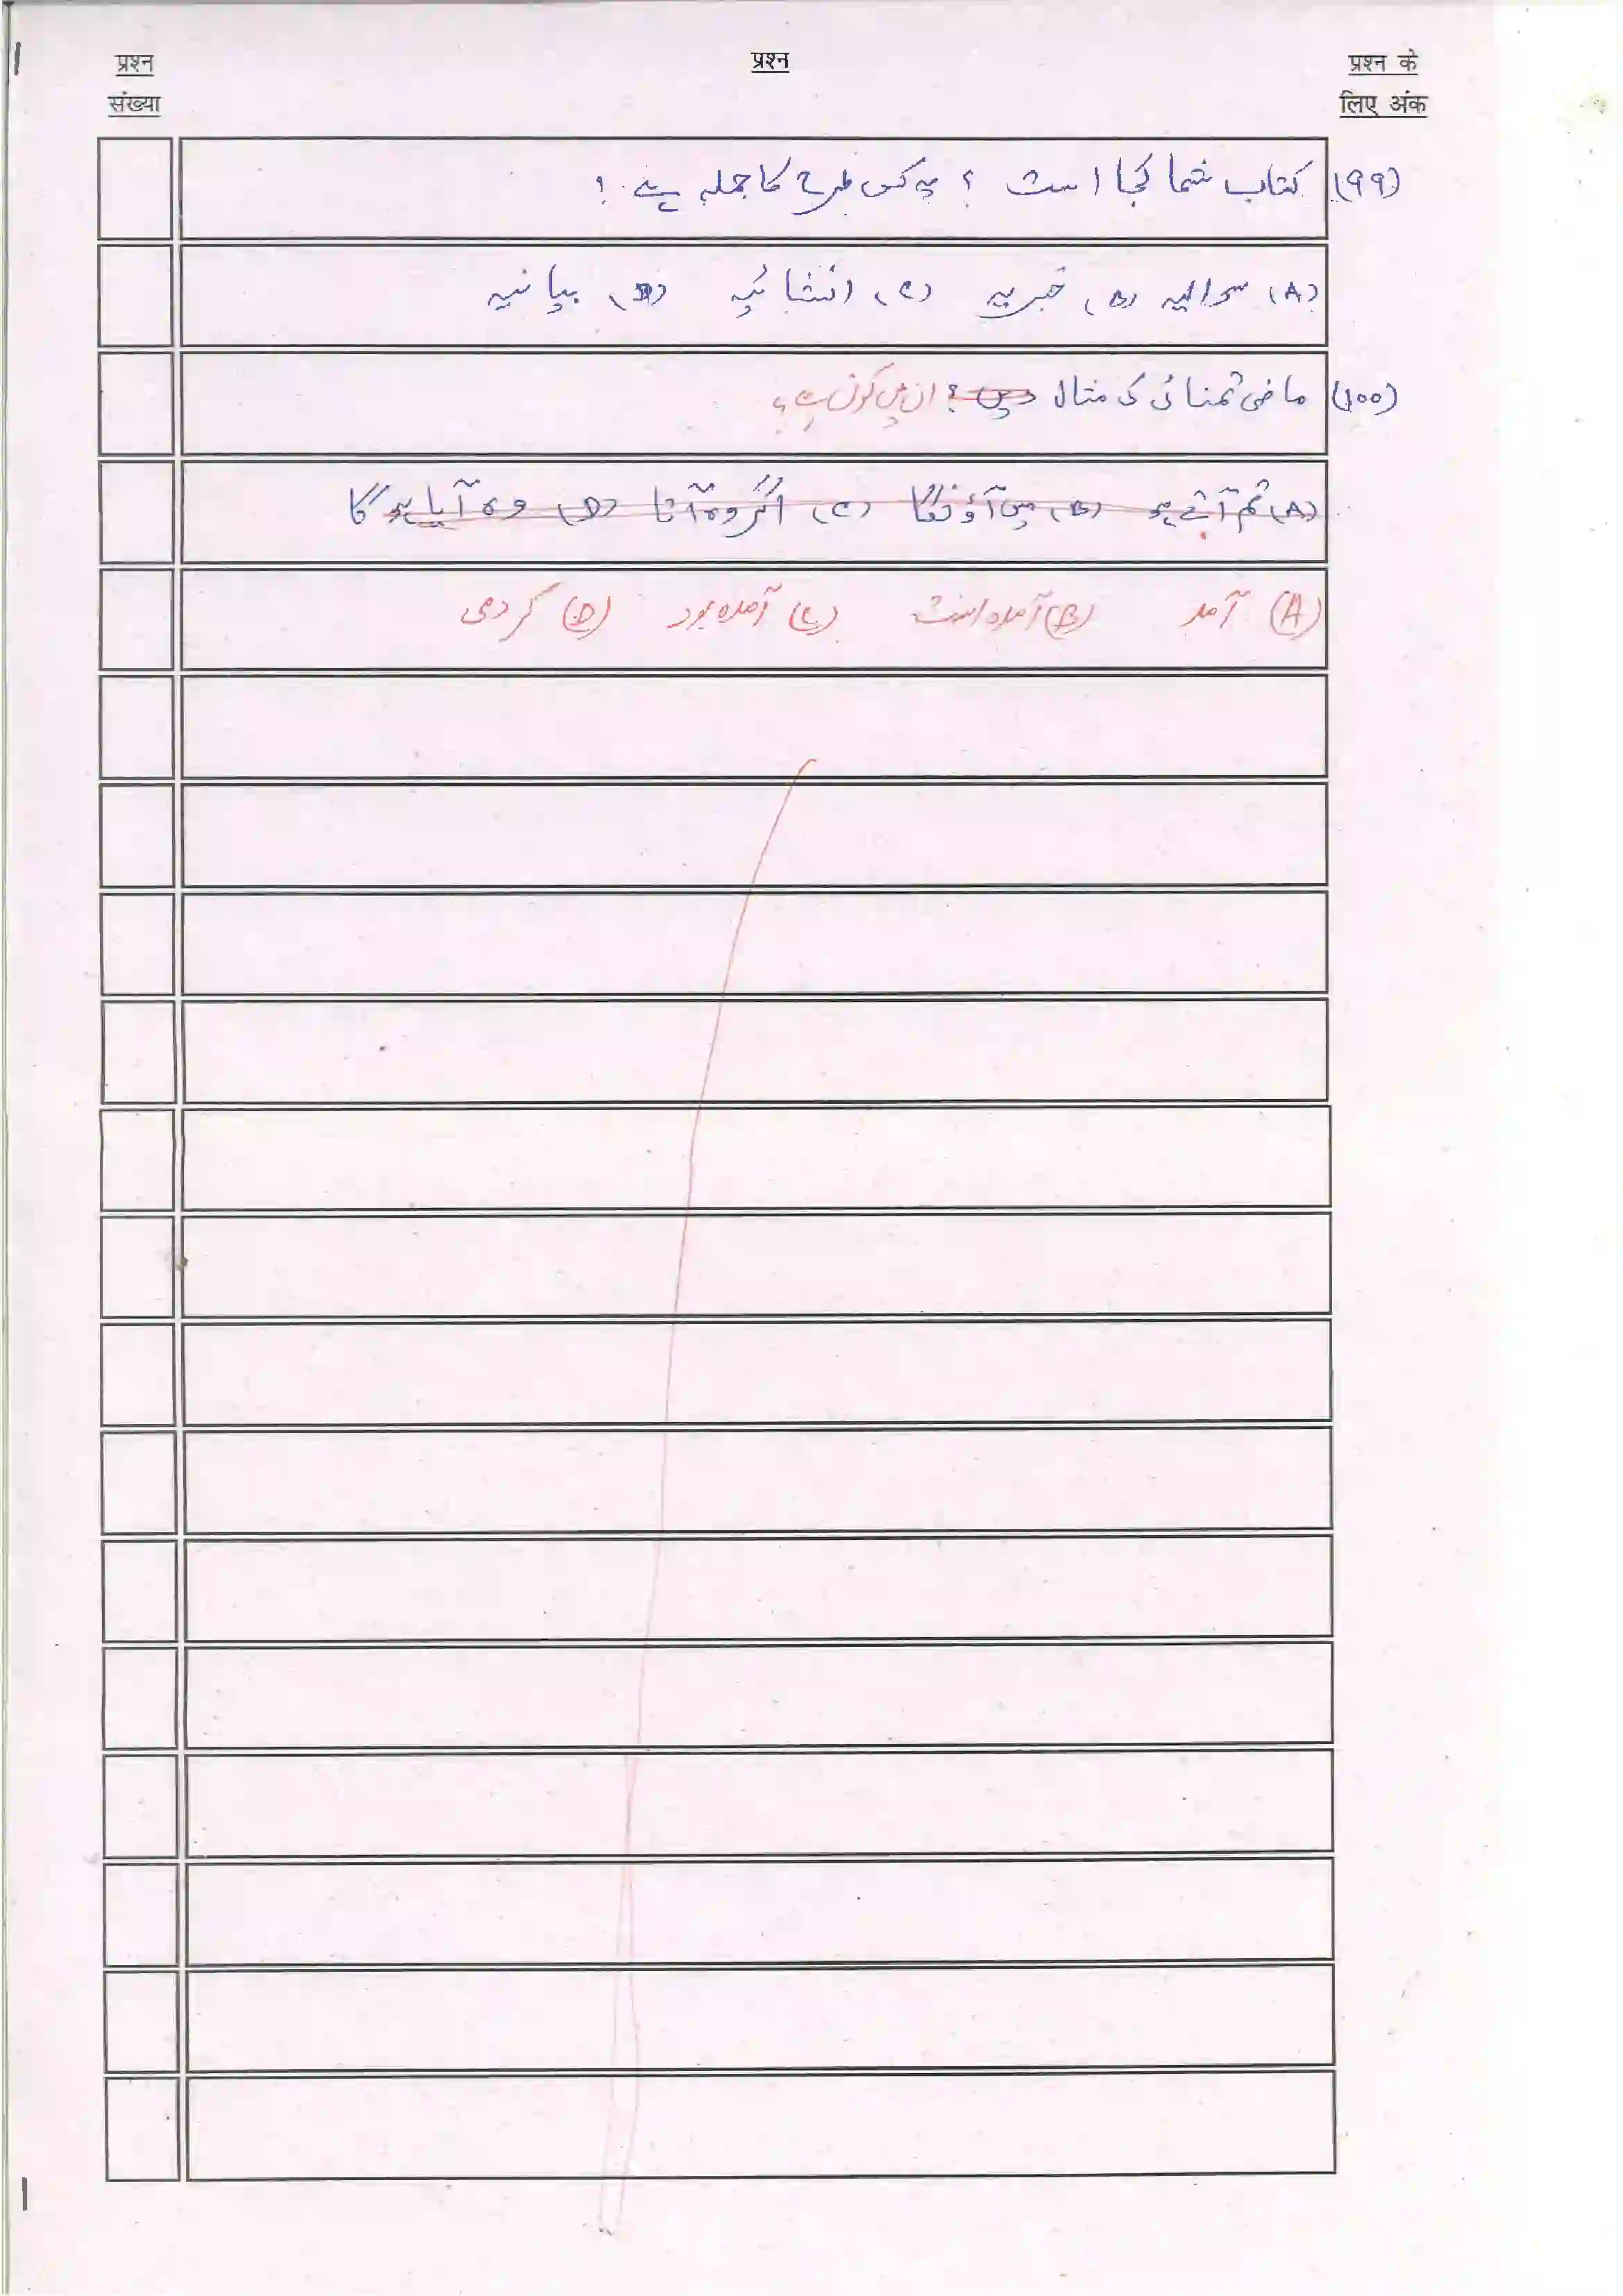 प्रश्न संख्या
प्रश्न
प्रश्न के लिए अंक
(۹۹) کتاب شما کجا است ؟ یہ کس طرح کا جملہ ہے ؟
(A) سوالیہ (B) خبریہ (C) انشائیہ (D) بیانیہ
(۱۰۰) ماضی تمنائی کی مثال دیں ؟ ان میں کون ہے ؟
(A) تم آتے ہو (B) میں آؤنگا (C) اگر وہ آتا (D) وہ آیا ہوگا
(A) آمد (B) آمدہ است (C) آمدہ بود (D) کردمی